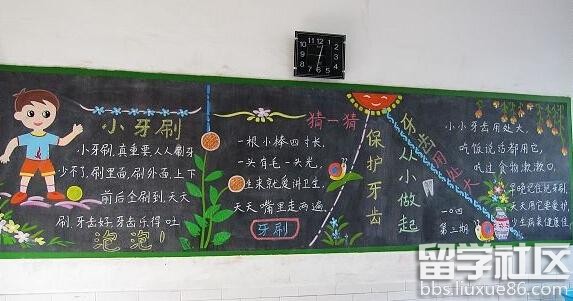 小牙刷
小牙刷,真重要,人人刷牙
少不了,刷里面,刷外面,上下
前后全刷到,天天
刷,牙齿好,牙齿乐得吐
泡泡!
猜一猜
一根小棒四寸长,
一头有毛一头光,
生来就爱讲卫生,
天天嘴里走两遍,
牙刷
保护牙齿
从小做起
牙齿用处大
小小牙齿用处大,
吃饭说话都用它,
吃过食物漱漱口,
早晚记住把牙刷,
天天用它要爱护,
少生病来健康佳,
一四
第三期
留学社区
bbs.liuxue86.com